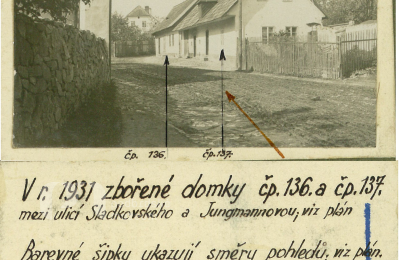 čp. 136. čp. 137.
V r. 1931 zbořené domky čp. 136. a čp. 137.
mezi ulicí Sladkovského a Jungmannovou, viz plán
Barevné šipky ukazují směry pohledů, viz plán.